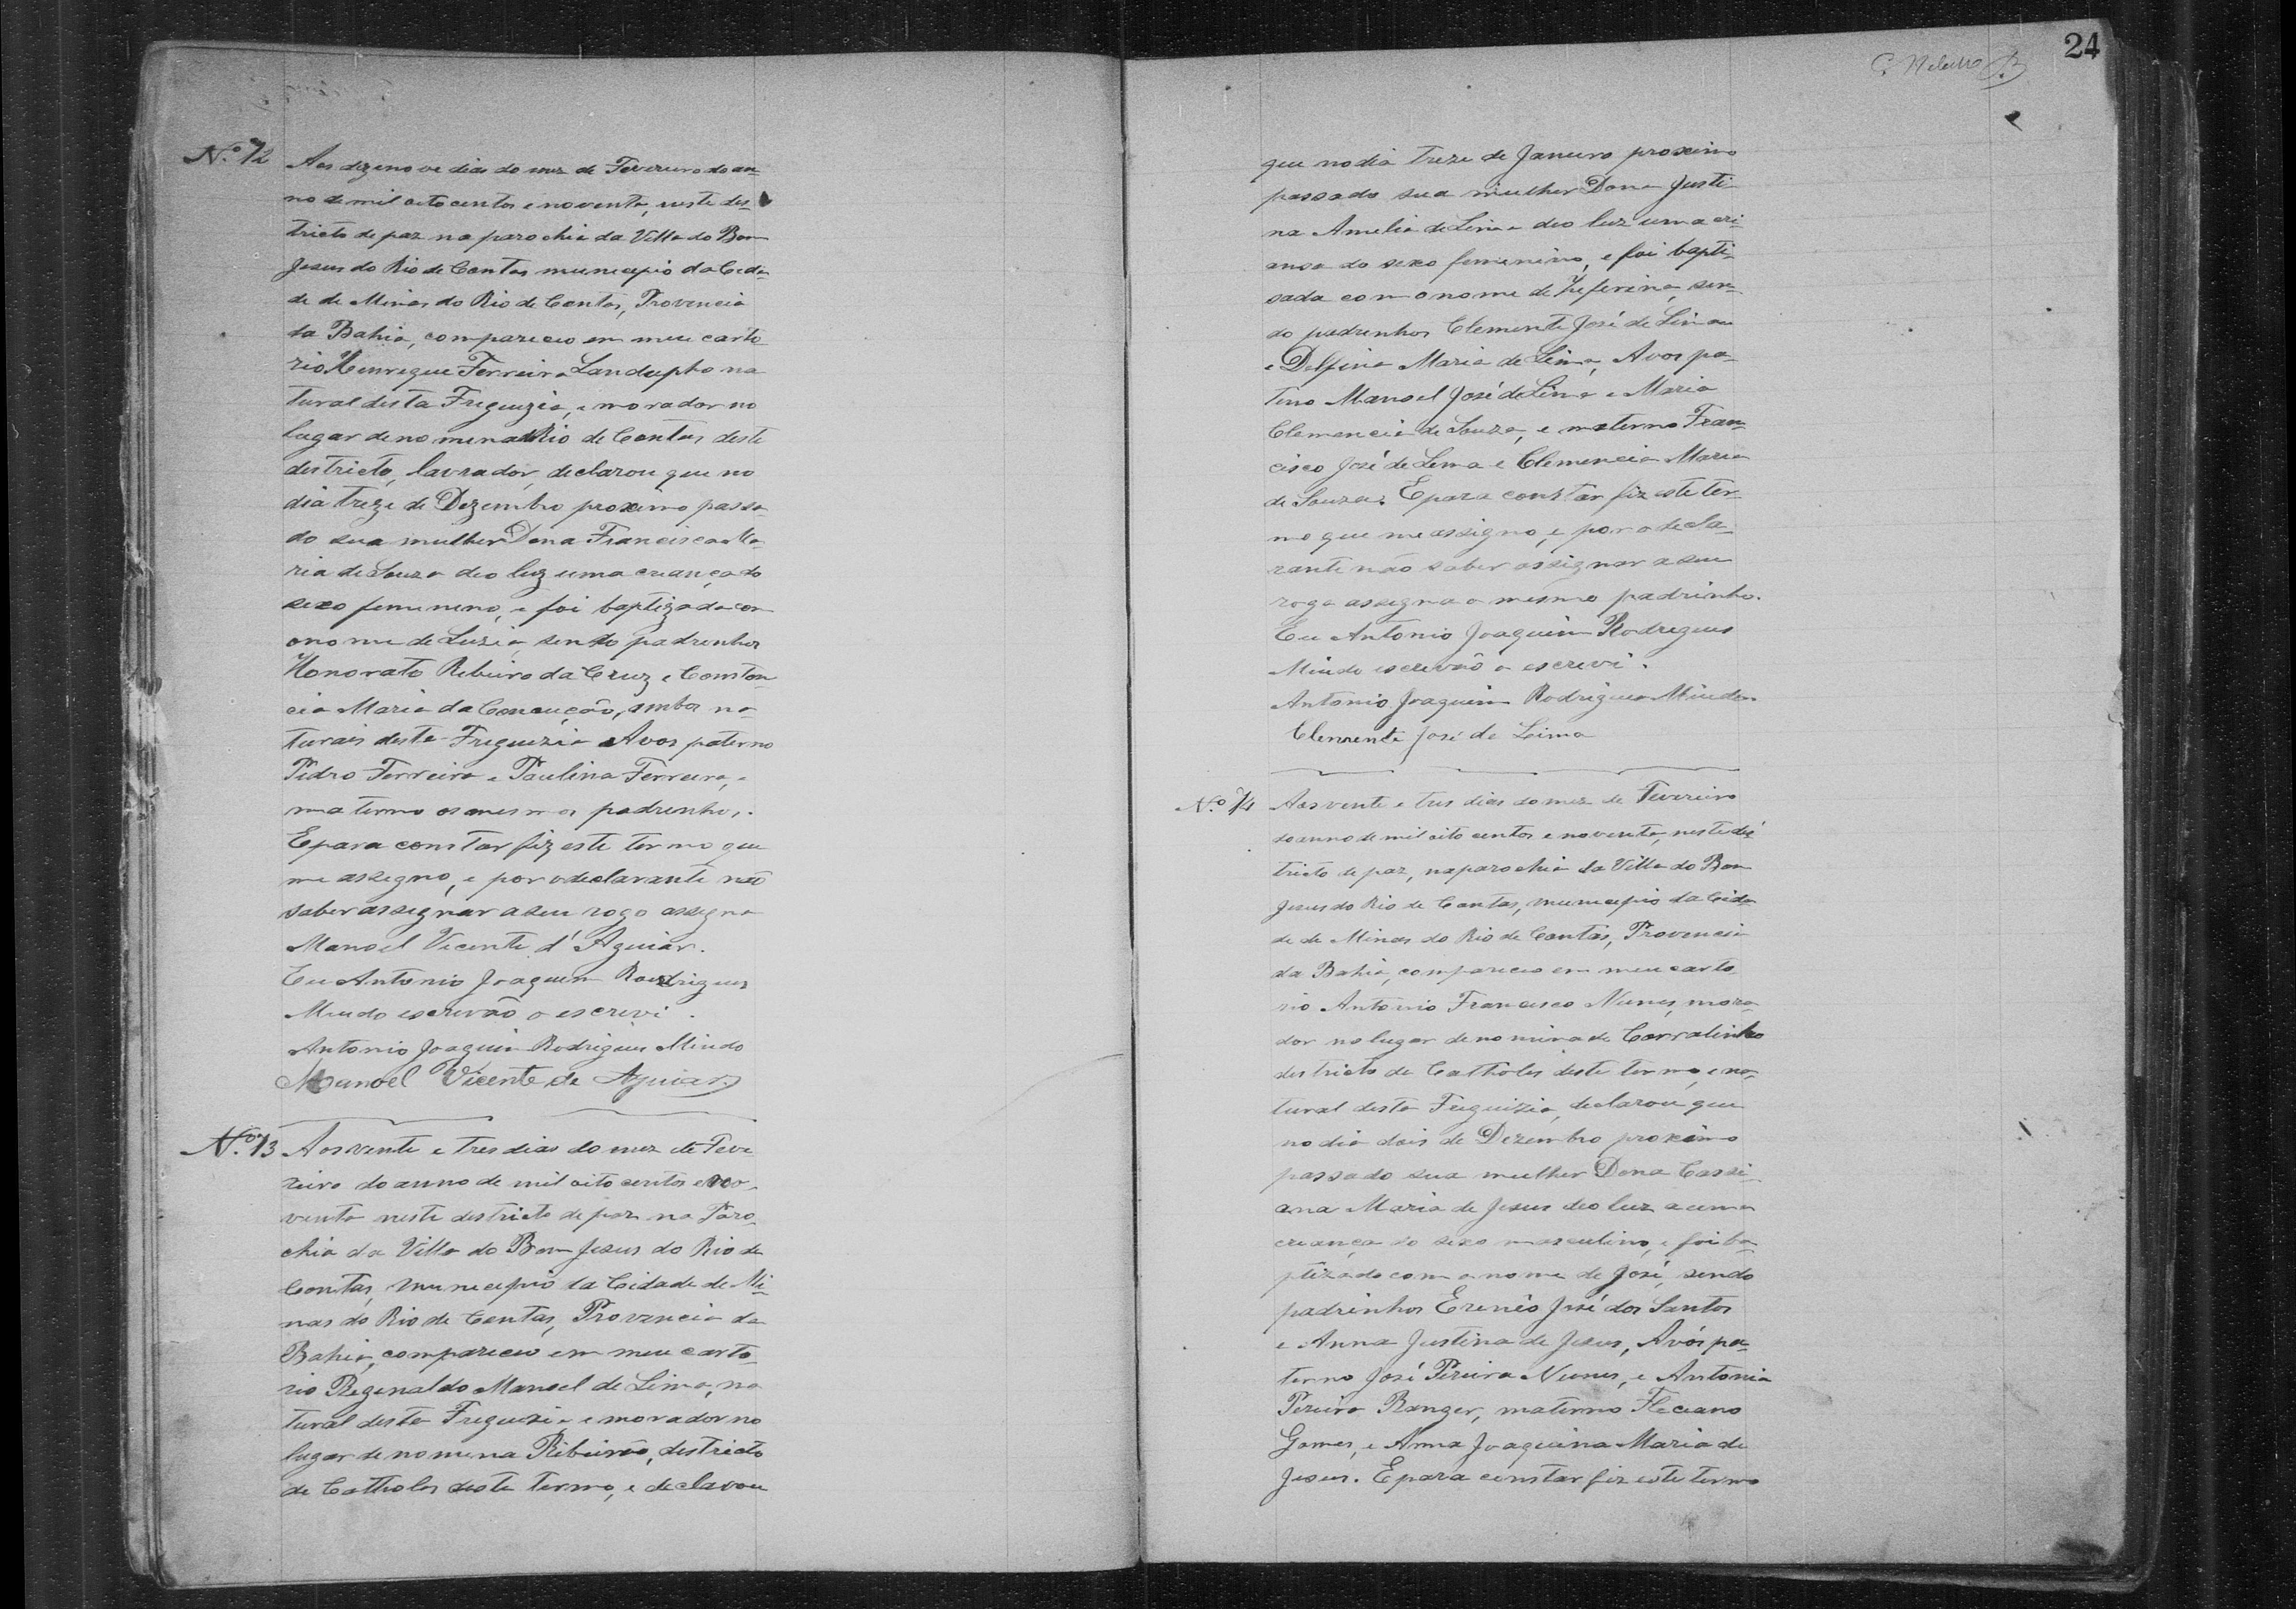 24
Nº 72
Aos dezenove dias do mez de Fevereiro do an-
no de mil oito centos e noventa, neste des-
tricto de paz na parochia da Villa do Bom
Jesus do Rio de Contas municepio da Cida-
de de Minas do Rio de Contas, Provencia
da Bahia, compareceu em meu carto
rio Henrique Ferreira Landupho na
tural desta Freguezia, e morador no
lugar denomenado Rio de Contas deste
destricto, lavrador, declarou que no
dia treze de Dezembro proximo passa-
do sua mulher Dona Francisca Ma-
ria de Souza deo luz uma creança do
sexo femeneno, e foi baptizada com
o nome de Luzia, sendo padrenhos
Honorato Ribeiro da Cruz e Constan-
cia Maria da Conceição, ambos na-
turais desta Freguezia Avos paterno
Pedro Ferreira e Paulina Ferreira, e
materno os mesmos padrenhos.
E para constar fiz este termo que
me assegno, e por o declarante não
saber assegnar a seu rogo assegna
Manoel Vicente d'Aguiar.
Eu Antonio Joaquim Rodrigues
Miudo escrevão o escrevi.
Antonio Joaquim Rodrigues Miudo
Manoel Vicente de Aguiar
Nº 73
Aos vente e tres dias do mez de Feve
reiro do anno de mil oito centos e no-
venta neste destricto de paz na Paro-
chia da Villa do Bom Jesus do Rio de
Contas, municepio da Cidade de Mi-
nas do Rio de Contas, Provencia da
Bahia, compareceu em meu carto-
rio Regenaldo Manoel de Lima, na
tural desta Freguezia e morador no
lugar denomena Ribeirão, destricto
de Catholes deste termo, e declarou
que no dia treze de Janeiro proximo
passado sua mulher Dona Justi-
na Amelia de Lima deo luz uma cri-
ansa do sexo femenino, e foi bapti-
sada com o nome de Zeferina, sen-
do padrenhos Clemente José de Lima
e Delfina Maria de Lima, Avos pa-
terno Manoel José de Lima e Maria
Clemencia de Souza, e materno Fran-
cisco José de Lima e Clemencia Maria
de Souza. E para constar fiz este ter-
mo que me assigno, e por o decla-
rante não saber assignar a seu
rogo assegna o mesmo padrinho.
Eu Antonio Joaquim Rodregues
Miudo escrevão o escrevi.
Antonio Joaquim Rodrigues Miudo
Clemente José de Lima
Nº 74
Aos vente e tres dias do mez de Fevereiro
do anno de mil oito centos e noventa, neste dis
tricto de paz, na parochia da Villa do Bom
Jesus do Rio de Contas, municepio da Cida-
de de Minas do Rio de Contas, Provencia
da Bahia, compareceu em meu carto
rio Antonio Francisco Nunes, mora-
dor no lugar denominado Corralinho
destricto de Catholes deste termo, e na-
tural desta Freguizia, declarou que
no dia dois de Dezembro proximo
passado sua mulher Dona Cassi-
ana Maria de Jesus deo luz a uma
creança do sexo masculino, e foi ba-
ptizado com o nome de José, sendo
padrinhos Erenêo José dos Santos
e Anna Justina de Jesus, Avós pa-
terno José Pereira Nunes, e Antonia
Pereira Ranger, materno Feleciano
Gomes, e Anna Joaquina Maria de
Jesus. E para constar fiz este termo